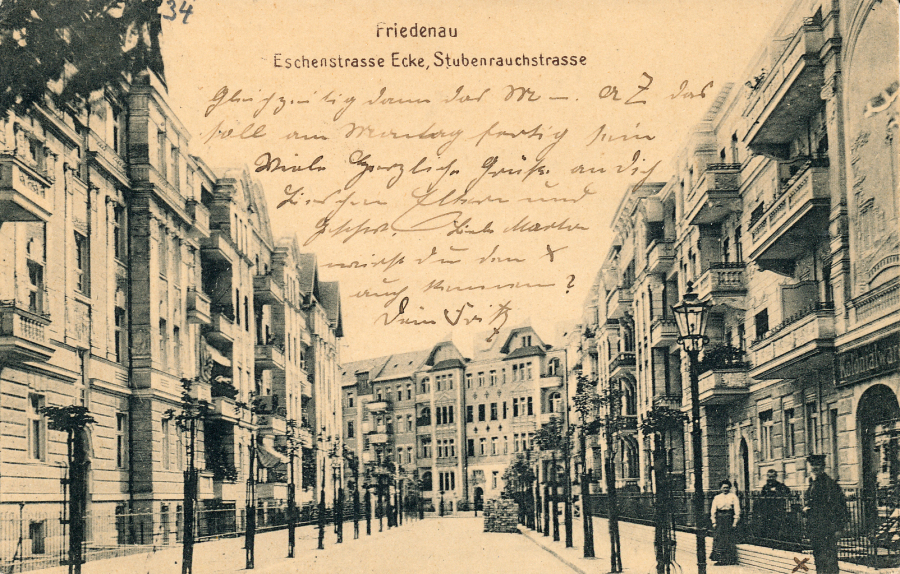 34
Friedenau
Eschenstrasse Ecke, Stubenrauchstrasse
Gleichzeitig dann das M - . a Z das
soll am Montag fertig sein
Viele herzliche Grüße an dich
Lieschen Eltern und
Geschw. Liebe Martha
wirst du den X
auch kennen?
Dein Fritz
Kolonialwar
X